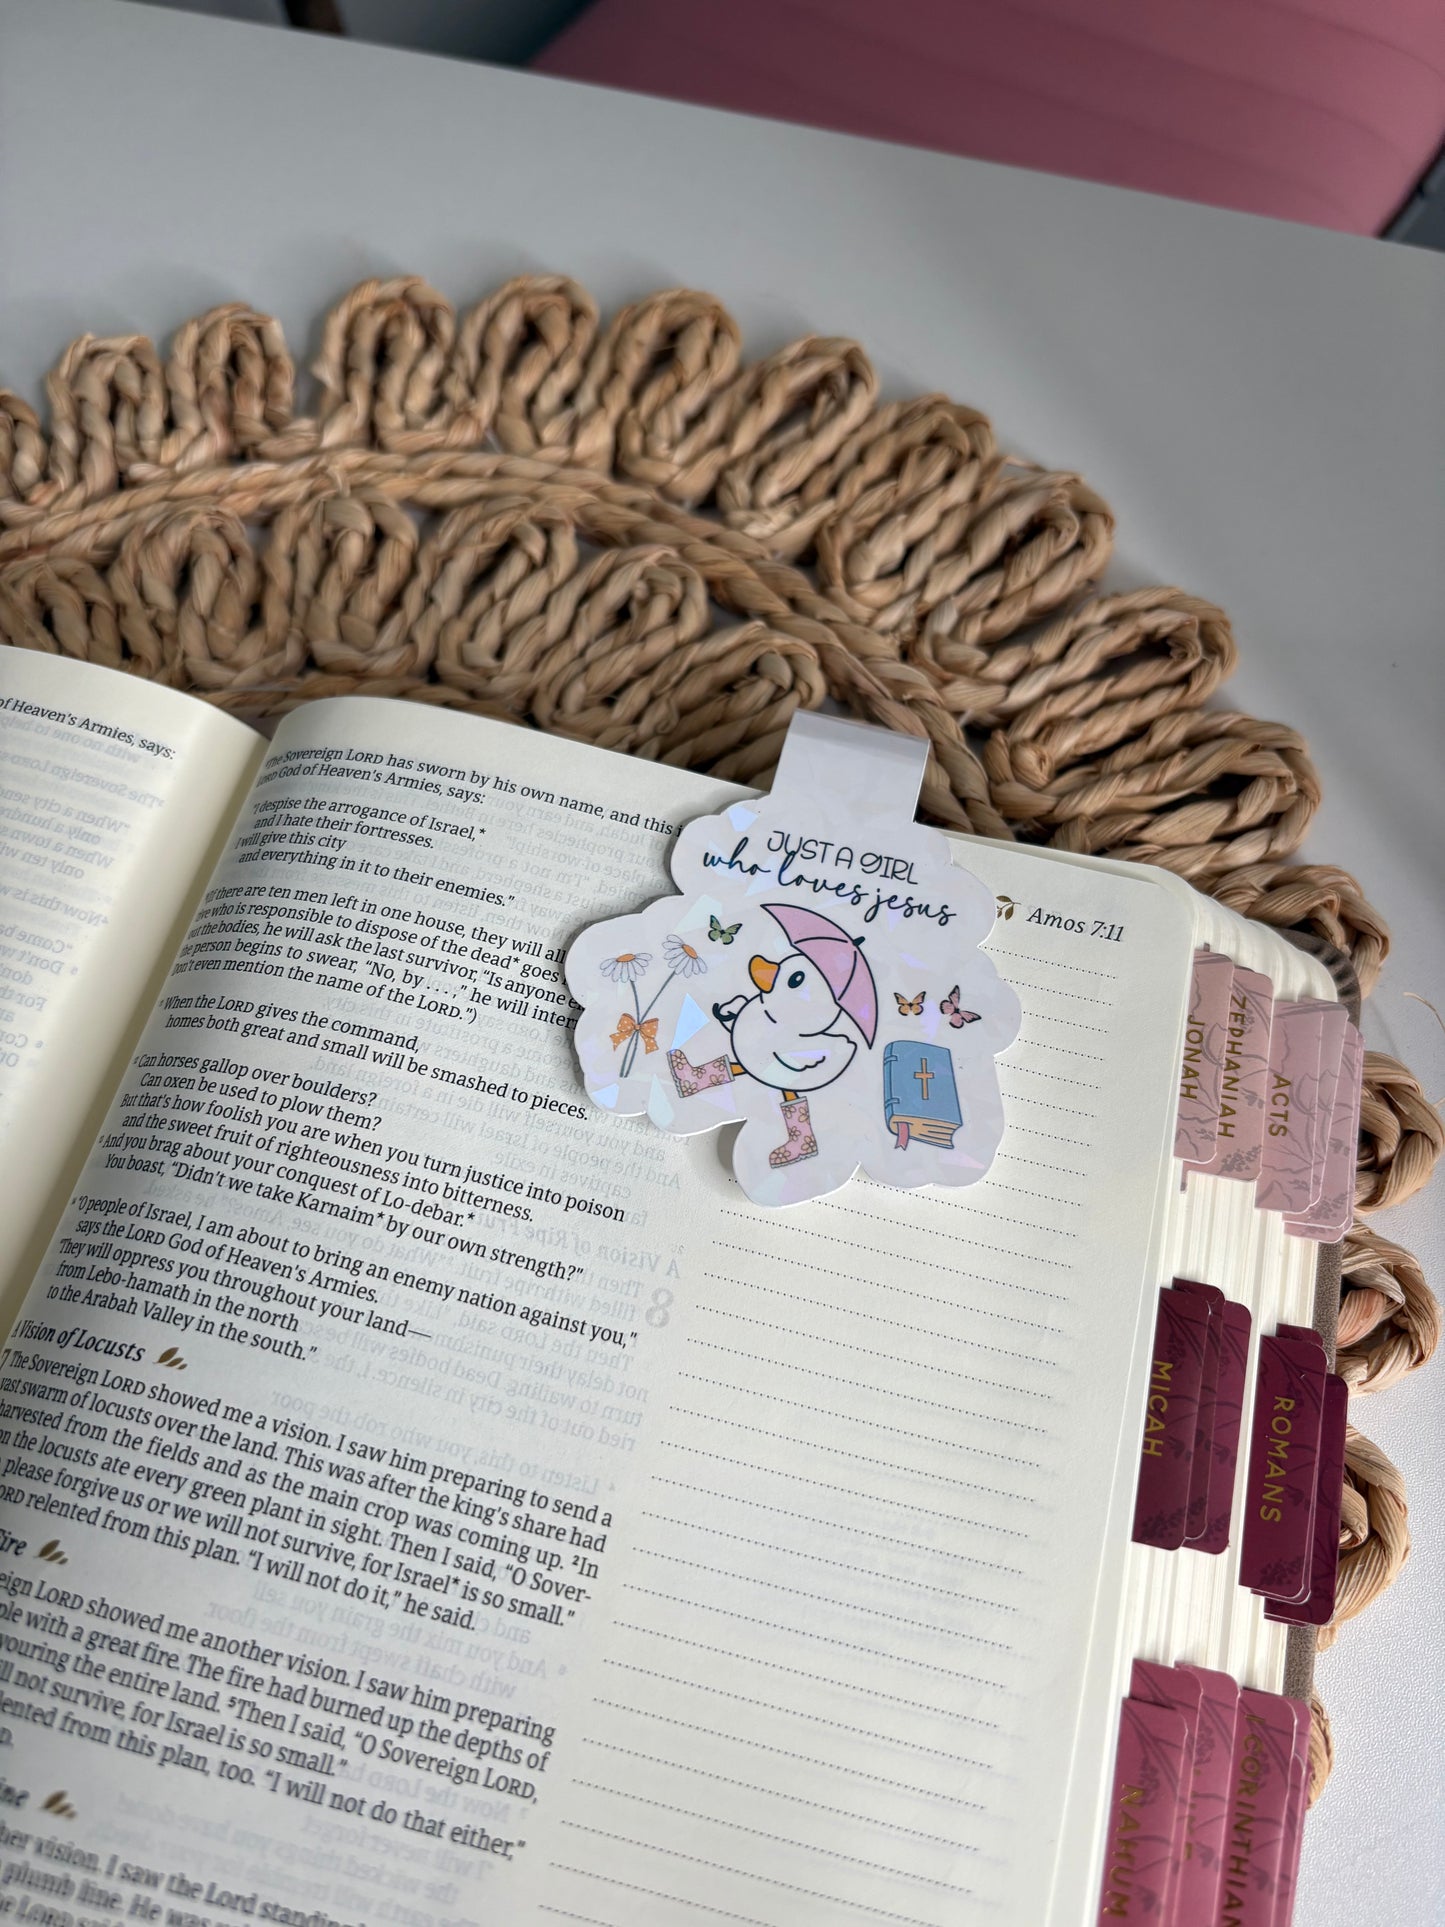 of Heaven's Armies, says:
The Sovereign LORD has sworn by his own name, and this i
LORD God of Heaven's Armies, says:
"I despise the arrogance of Israel,*
and I hate their fortresses.
I will give this city
and everything in it to their enemies."
If there are ten men left in one house, they will all
who is responsible to dispose of the dead* goes
out the bodies, he will ask the last survivor, "Is anyone
the person begins to swear, "No, by . . . ," he will inter
Don't even mention the name of the LORD.")
When the LORD gives the command,
homes both great and small will be smashed to pieces.
Can horses gallop over boulders?
Can oxen be used to plow them?
But that's how foolish you are when you turn justice into poison
and the sweet fruit of righteousness into bitterness.
And you brag about your conquest of Lo-debar.*
You boast, "Didn't we take Karnaim* by our own strength?"
"O people of Israel, I am about to bring an enemy nation against you,"
says the LORD God of Heaven's Armies.
"They will oppress you throughout your land—
from Lebo-hamath in the north
to the Arabah Valley in the south."
A Vision of Locusts
7 The Sovereign LORD showed me a vision. I saw him preparing to send a
vast swarm of locusts over the land. This was after the king's share had
harvested from the fields and as the main crop was coming up. 2In
the locusts ate every green plant in sight. Then I said, "O Sover-
please forgive us or we will not survive, for Israel* is so small."
ORD relented from this plan. "I will not do it," he said.
Fire
eign LORD showed me another vision. I saw him preparing
ple with a great fire. The fire had burned up the depths of
vouring the entire land. 5Then I said, "O Sovereign LORD,
ill not survive, for Israel is so small."
lented from this plan, too. "I will not do that either,"
ine
her vision. I saw the Lord standing
plumb line. He was
the LORD said
JUST A GIRL
who loves jesus
Amos 7:11
JONAH
ZEPHANIAH
ACTS
MICAH
ROMANS
NAHUM
1 CORINTHIAN